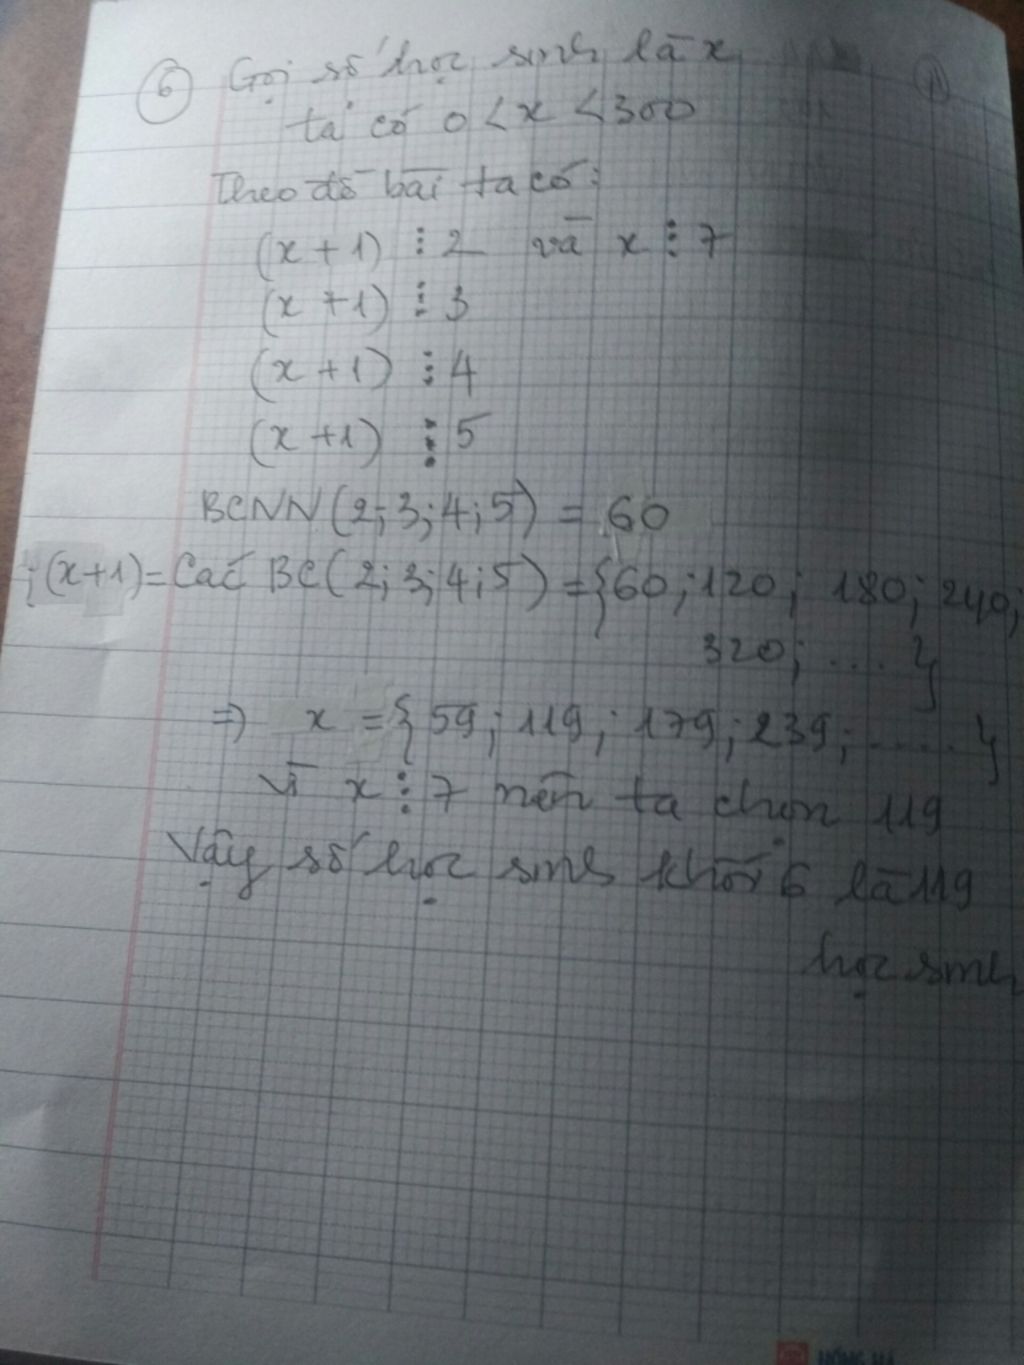 6 Gọi số học sinh là x
ta có 0 < x < 300
Theo đề bài ta có:
(x + 1) ⋮ 2 và x ⋮ 7
(x + 1) ⋮ 3
(x + 1) ⋮ 4
(x + 1) ⋮ 5
BCNN (2; 3; 4; 5) = 60
(x+1) = Các BC (2; 3; 4; 5) = {60; 120; 180; 240;
320; .... }
=> x = { 59; 119; 179; 239; ..... }
Vì x ⋮ 7 nên ta chọn 119
Vậy số học sinh khối 6 là 119
học sinh
HỒNG HÀ